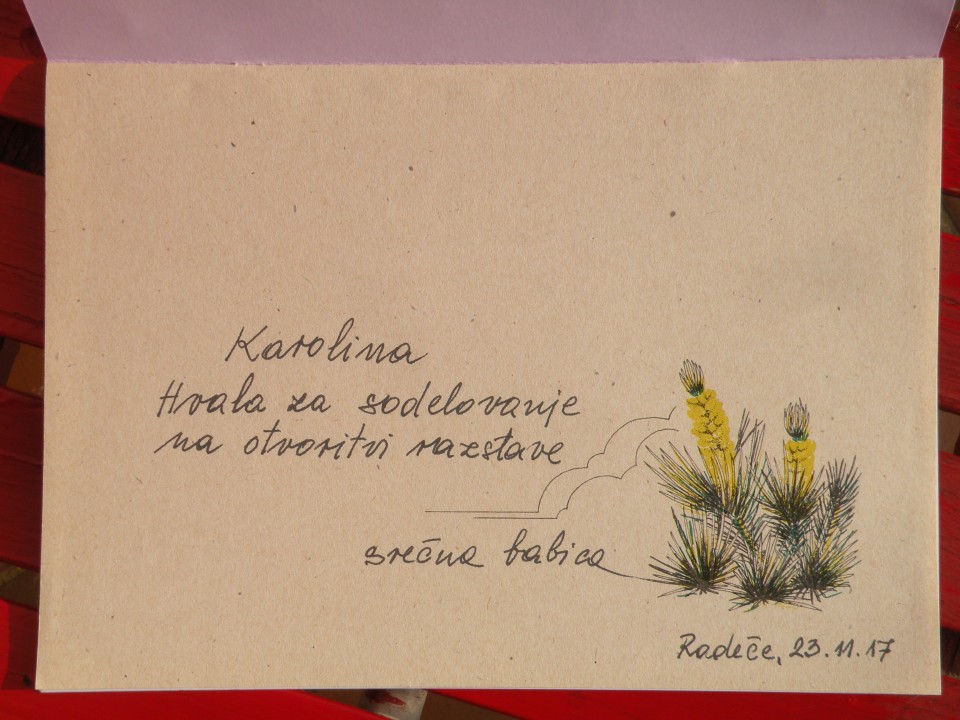 Karolina
Hvala za sodelovanje
na otvoritvi razstave
srečna babica
Radeče, 23.11.17